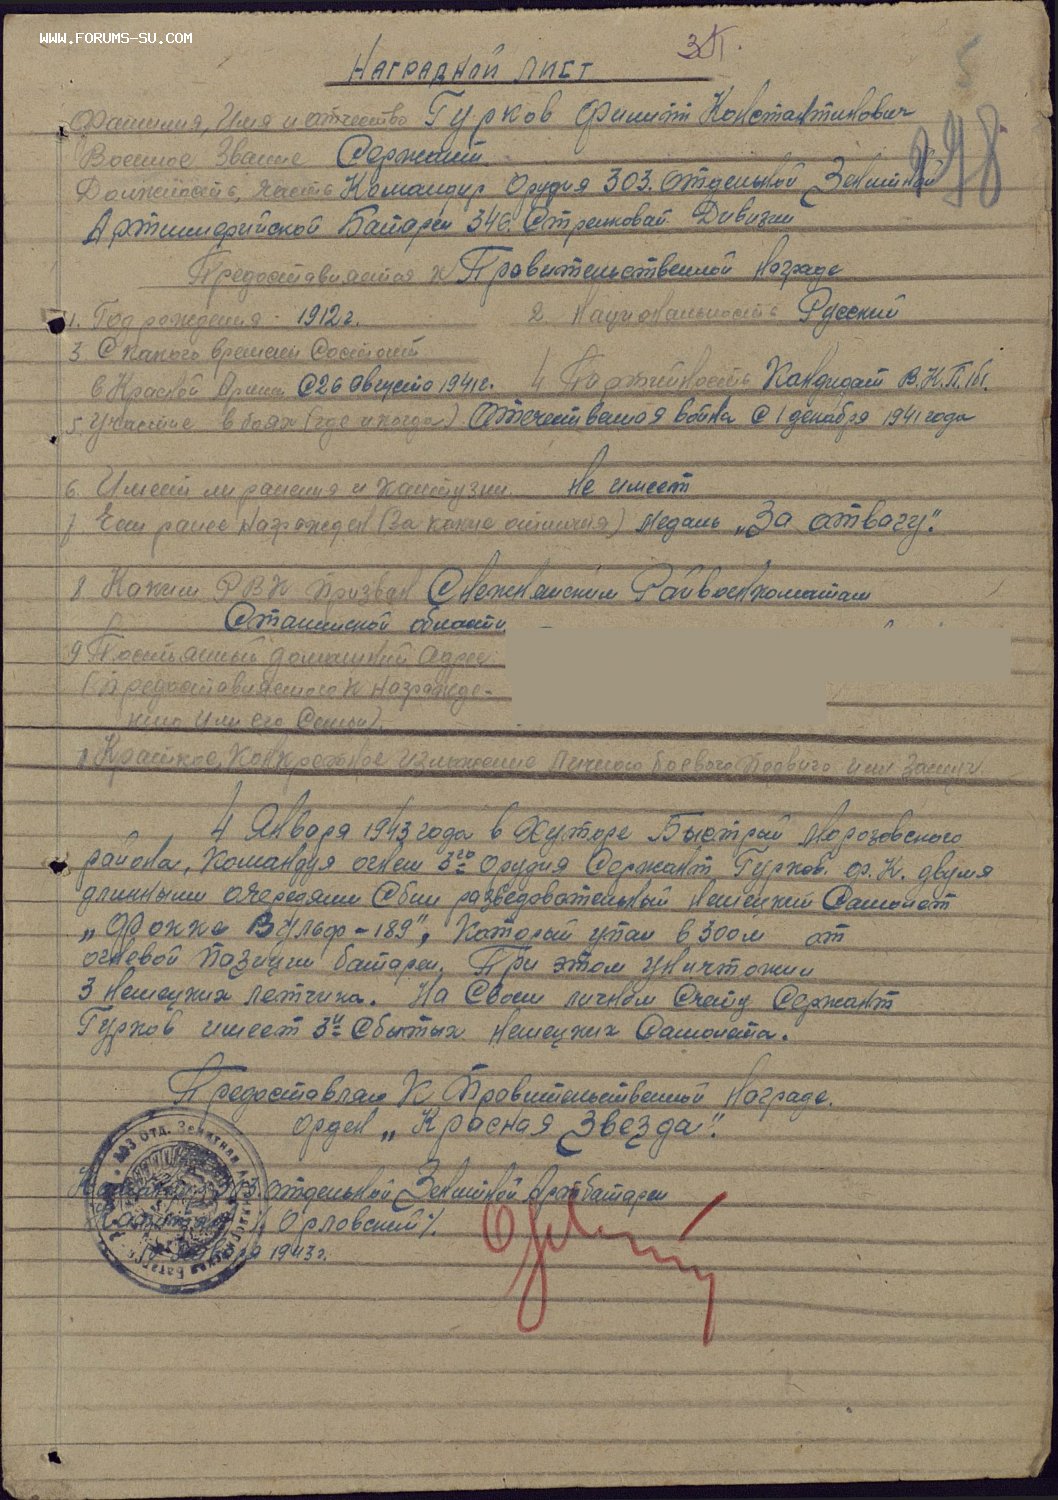 WWW.FORUMS-SU.COM
ЗК.
5
Наградной лист
298
Фамилия, Имя и отчество Гурков Филипп Константинович
Военное Звание Сержант
Должность, часть Командир Орудия 303. отдельной Зенитной
Артиллерийской Батареи 346 Стрелковай Дивизии
Предоставляется к Правительственной Награде
1. Год рождения 1912 г. 2 Национальность Русский
3 С какого времени Состоит
в Красной Армии С 26 Августа 1941 г. 4 Партийность Кандидат В.К.П./б/.
5. Участие в боях (где и когда) Отечественая война С 1 декабря 1941 года
6. Имеет ли ранения и контузии Не имеет
7 Чем ранее Награжден (За какие отличия) Медаль „За отвагу".
8 Каким РВК Призван Снежнянским Райвоенкоматам
Сталинской области
9 Постоянный домашний Адрес
(предоставляемого к Награжде-
нию Или его Семьи).
Краткое, Конкретное Изложение Личного боевого Подвига или Заслуг.
4 Января 1943 года в Хуторе Быстрый Морозовского
района, Командуя огнем 3го Орудия Сержант Гурков. Ф. К. двумя
длинными очередями Сбил разведовательный Немецкий Самолет
„Фокке Вульф-189", Который упал в 300 м от
огневой Пазиции батареи. При этом Уничтожил
3 Немецких летчика. На Своем личном Счету Сержант
Гурков имеет 3и Сбитых Немецких Самолета.
Предоставляю К Правительственной Награде.
орден „Красная Звезда".
303 Отд. Зенитная Артиллерийская Батарея
отдельной Зенитной Артбатареи
/. Орловский /.
1943 г.